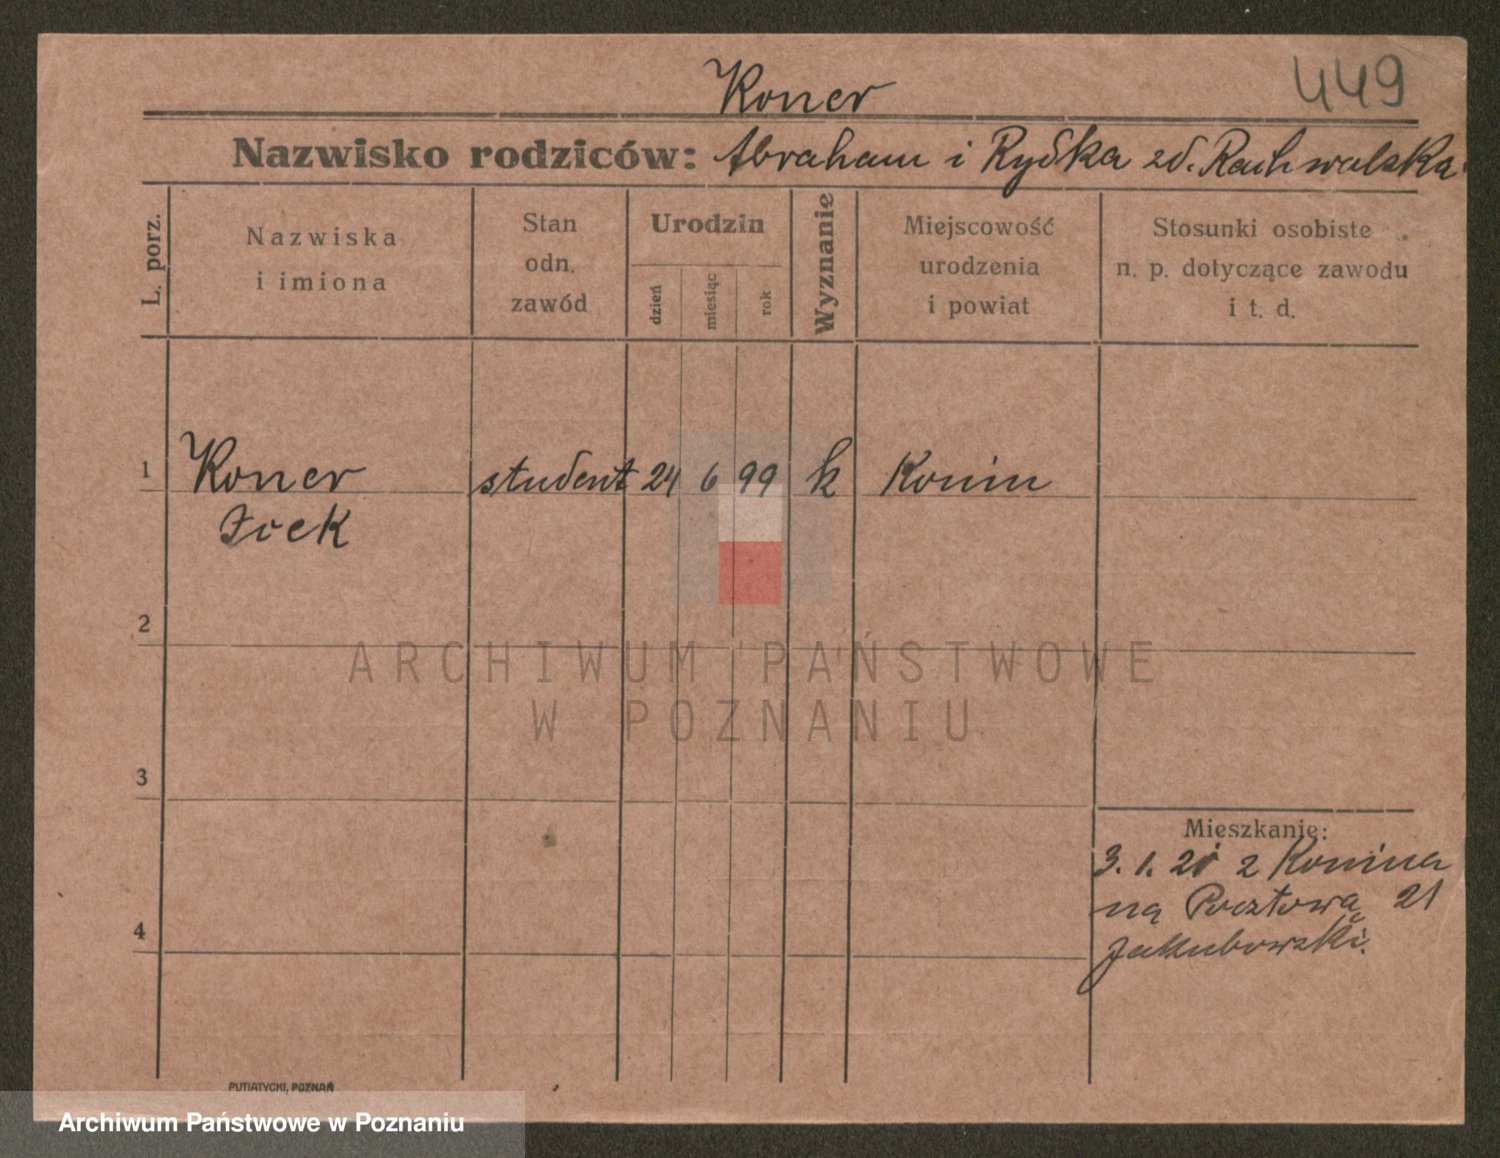 449
Koner
Nazwisko rodziców: Abraham i Rydka zd. Rachwalska
L. porz.
Nazwiska
i imiona
Stan
odn.
zawód
Urodzin
dzień
miesiąc
rok
Wyznanie
Miejscowość
urodzenia
i powiat
Stosunki osobiste
n. p. dotyczące zawodu
i t. d.
1 Koner student 24 6 99 k Konin
Icek
2
ARCHIWUM PAŃSTWOWE
W POZNANIU
3
Mieszkanie:
3. 1. 21 z Konina
na Pocztowa 21
4
Jakubowski.
PUTIATYCKI, POZNAŃ
Archiwum Państwowe w Poznaniu